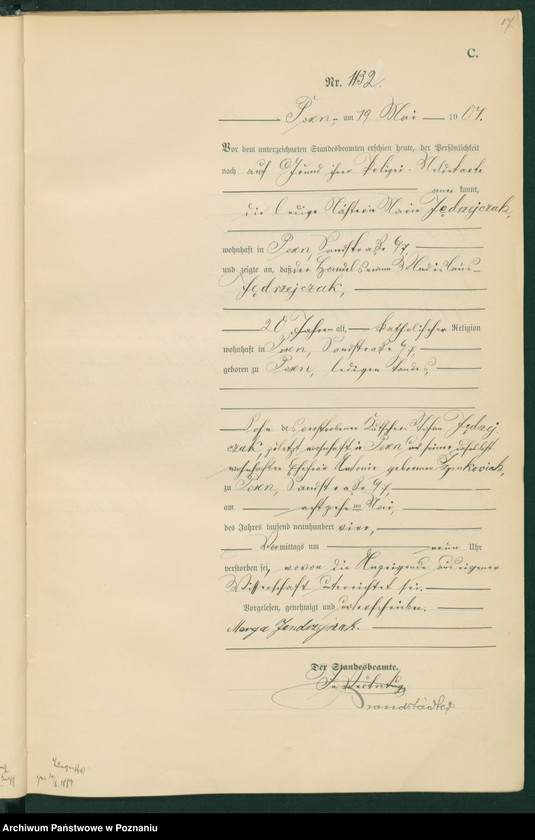 17
C.
Nr. 1132.
Posen, am 19 Mai 1904.
Vor dem unterzeichneten Standesbeamten erschien heute, der Persönlichkeit
nach auf Grund ihrer Polizei-Meldekarte
anerkannt,
die ledige Nähterin Marie Jędrzejczak,
wohnhaft in Posen, Sandstraße
und zeigte an, daß der Handelsmann Wladislaus
Jędrzejczak,
20 Jahre alt, katholischer Religion
wohnhaft in Posen, Sandstraße
geboren zu Posen, ledigen Standes,
Sohn des verstorbenen Kutschers Jędrzej-
czak, zuletzt wohnhaft in Posen und seiner daselbst
wohnhaften Ehefrau Antonie geborenen
zu Posen, Sandstraße
am achtzehnten Mai,
des Jahres tausend neunhundert vier,
Vormittags um neun Uhr
verstorben sei, wovon die Anzeigende aus eigener
Wissenschaft unterrichtet sei.
Vorgelesen, genehmigt und unterschrieben.
Marya Jendrzejczak.
Der Standesbeamte.
In Vertretung
Brandstädter
Archiwum Państwowe w Poznaniu